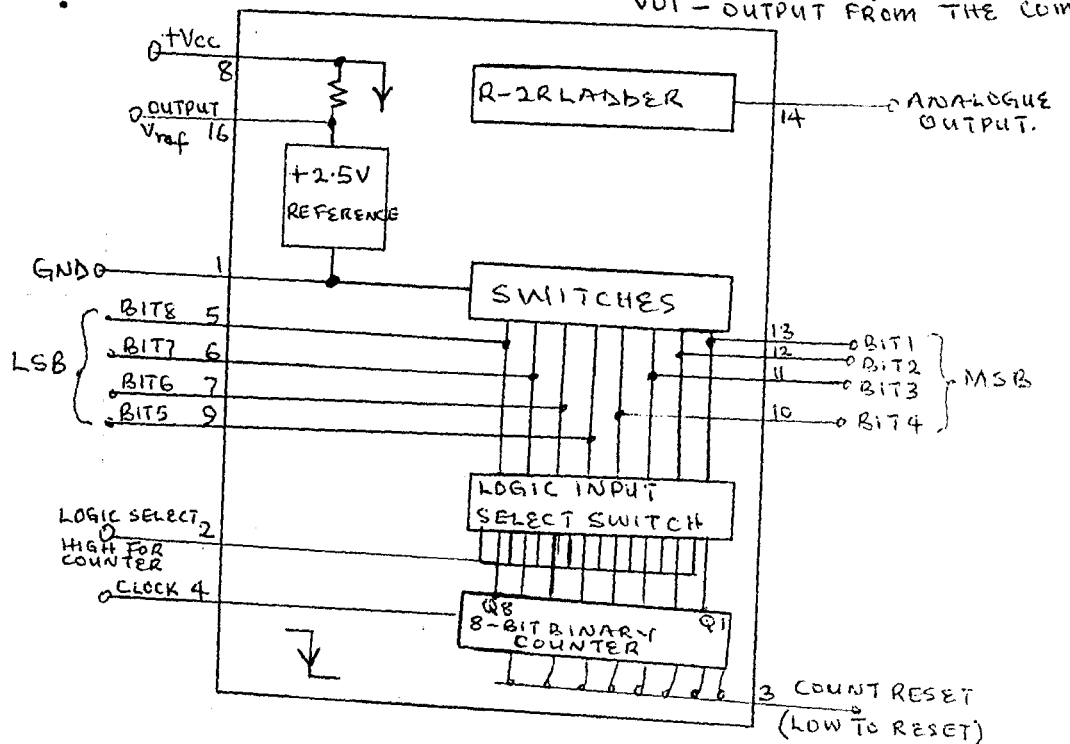 VOI - OUTPUT FROM THE COM
+Vcc
8
OUTPUT
Vref 16
R-2R LADDER
14
ANALOGUE
OUTPUT.
+2.5V
REFERENCE
GND 1
SWITCHES
LSB
BIT8 5
BIT7 6
BIT6 7
BIT5 9
13 BIT1
12 BIT2
11 BIT3
10 BIT4
MSB
LOGIC INPUT
SELECT SWITCH
LOGIC SELECT 2
HIGH FOR
COUNTER
CLOCK 4
Q8 Q1
8-BIT BINARY
COUNTER
3 COUNT RESET
(LOW TO RESET)